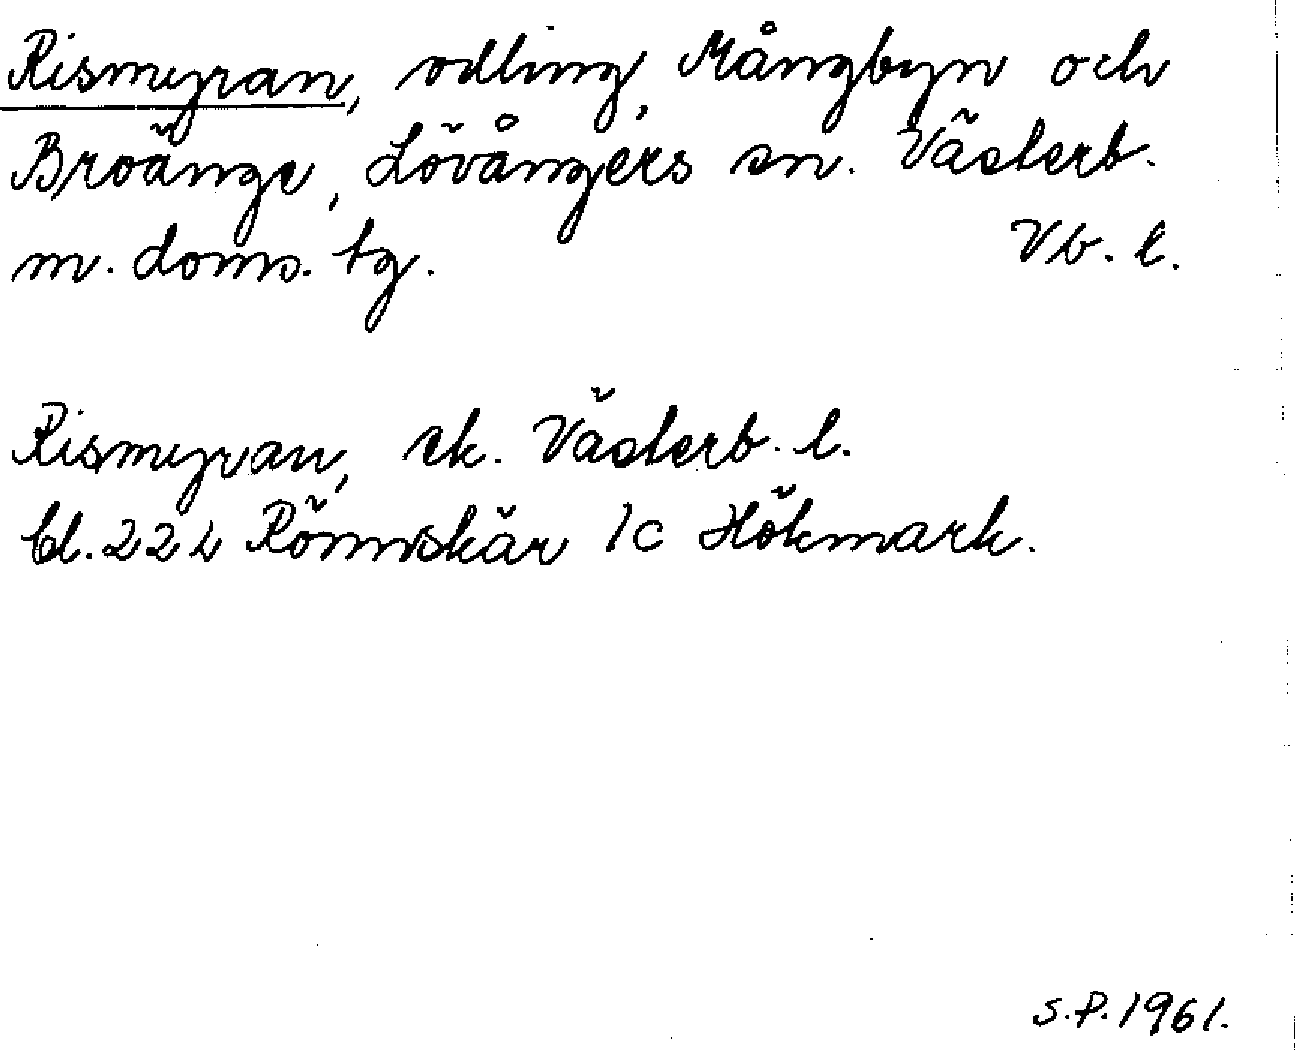 Rismyran, odling, Mångbyn och
Broänge, Lövångers sn. Västerb.
m. doms. tg. Vb. l.
Rismyran, ek. Västerb. l.
bl. 222 Rönnskär 1c Hökmark.
S.P. 1961.